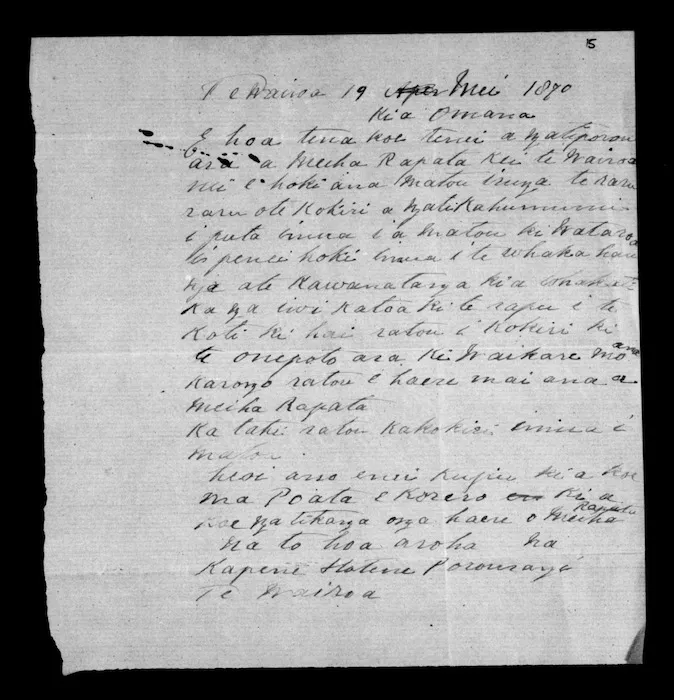 15
Te Wairoa 19 Mei 1870
Kia Omana
E hoa tena koe tenei a Ngatiporou
ara a Meiha Rapata kei te Wairoa
nei e hoki ana Matou i runga te raru
raru o te Kokiri a Ngatikahumunu
i puta i mua i a matou ki Wataroa
i penei hoki i mua i te whaka hau
nga a te Kawanatanga kia
ka nga iwi katoa ki te rapu i te
Koti ki hai ratou i Kokiri ki
te onepoto ara ki Waikare moana
Karongo ratou e haere mai ana a
Meiha Rapata
Ka tahi ratou ka kokiri i mua i
matou
heoi ano enei kupu ki a koe
ma Poata e Korero ki a
koe nga tikanga onga haere o Meiha Rapata
Na to hoa aroha Na
Kapene Hotene Porourangi
Te Wairoa